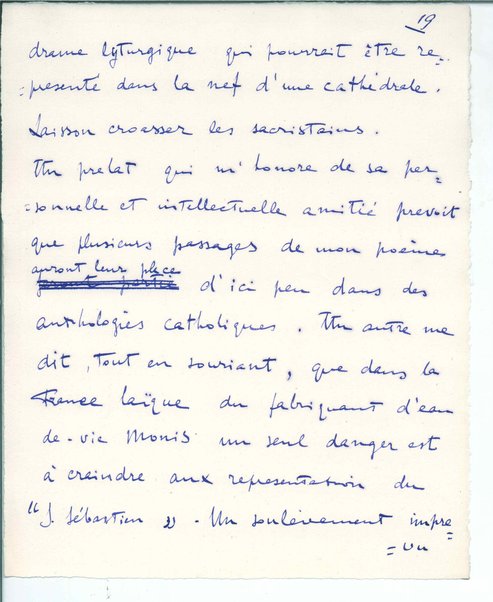 19
drame lyturgique qui pourrait être re=
=presenté dans la nef d'une cathédrale.
Laisson croasser les sacristains.
Un prelat qui m'honore de sa per=
=sonnelle et intellectuelle amitié prevoit
que plusieurs passages de mon poème
auront leur place
d'ici peu dans des
anthologies catholiques. Un autre me
dit, tout en souriant, que dans la
France laïque du fabriquant d'eau
de-vie Monis un seul danger est
à craindre aux representation du
“S. Sébastien”. Un soulèvement impre=
=vu